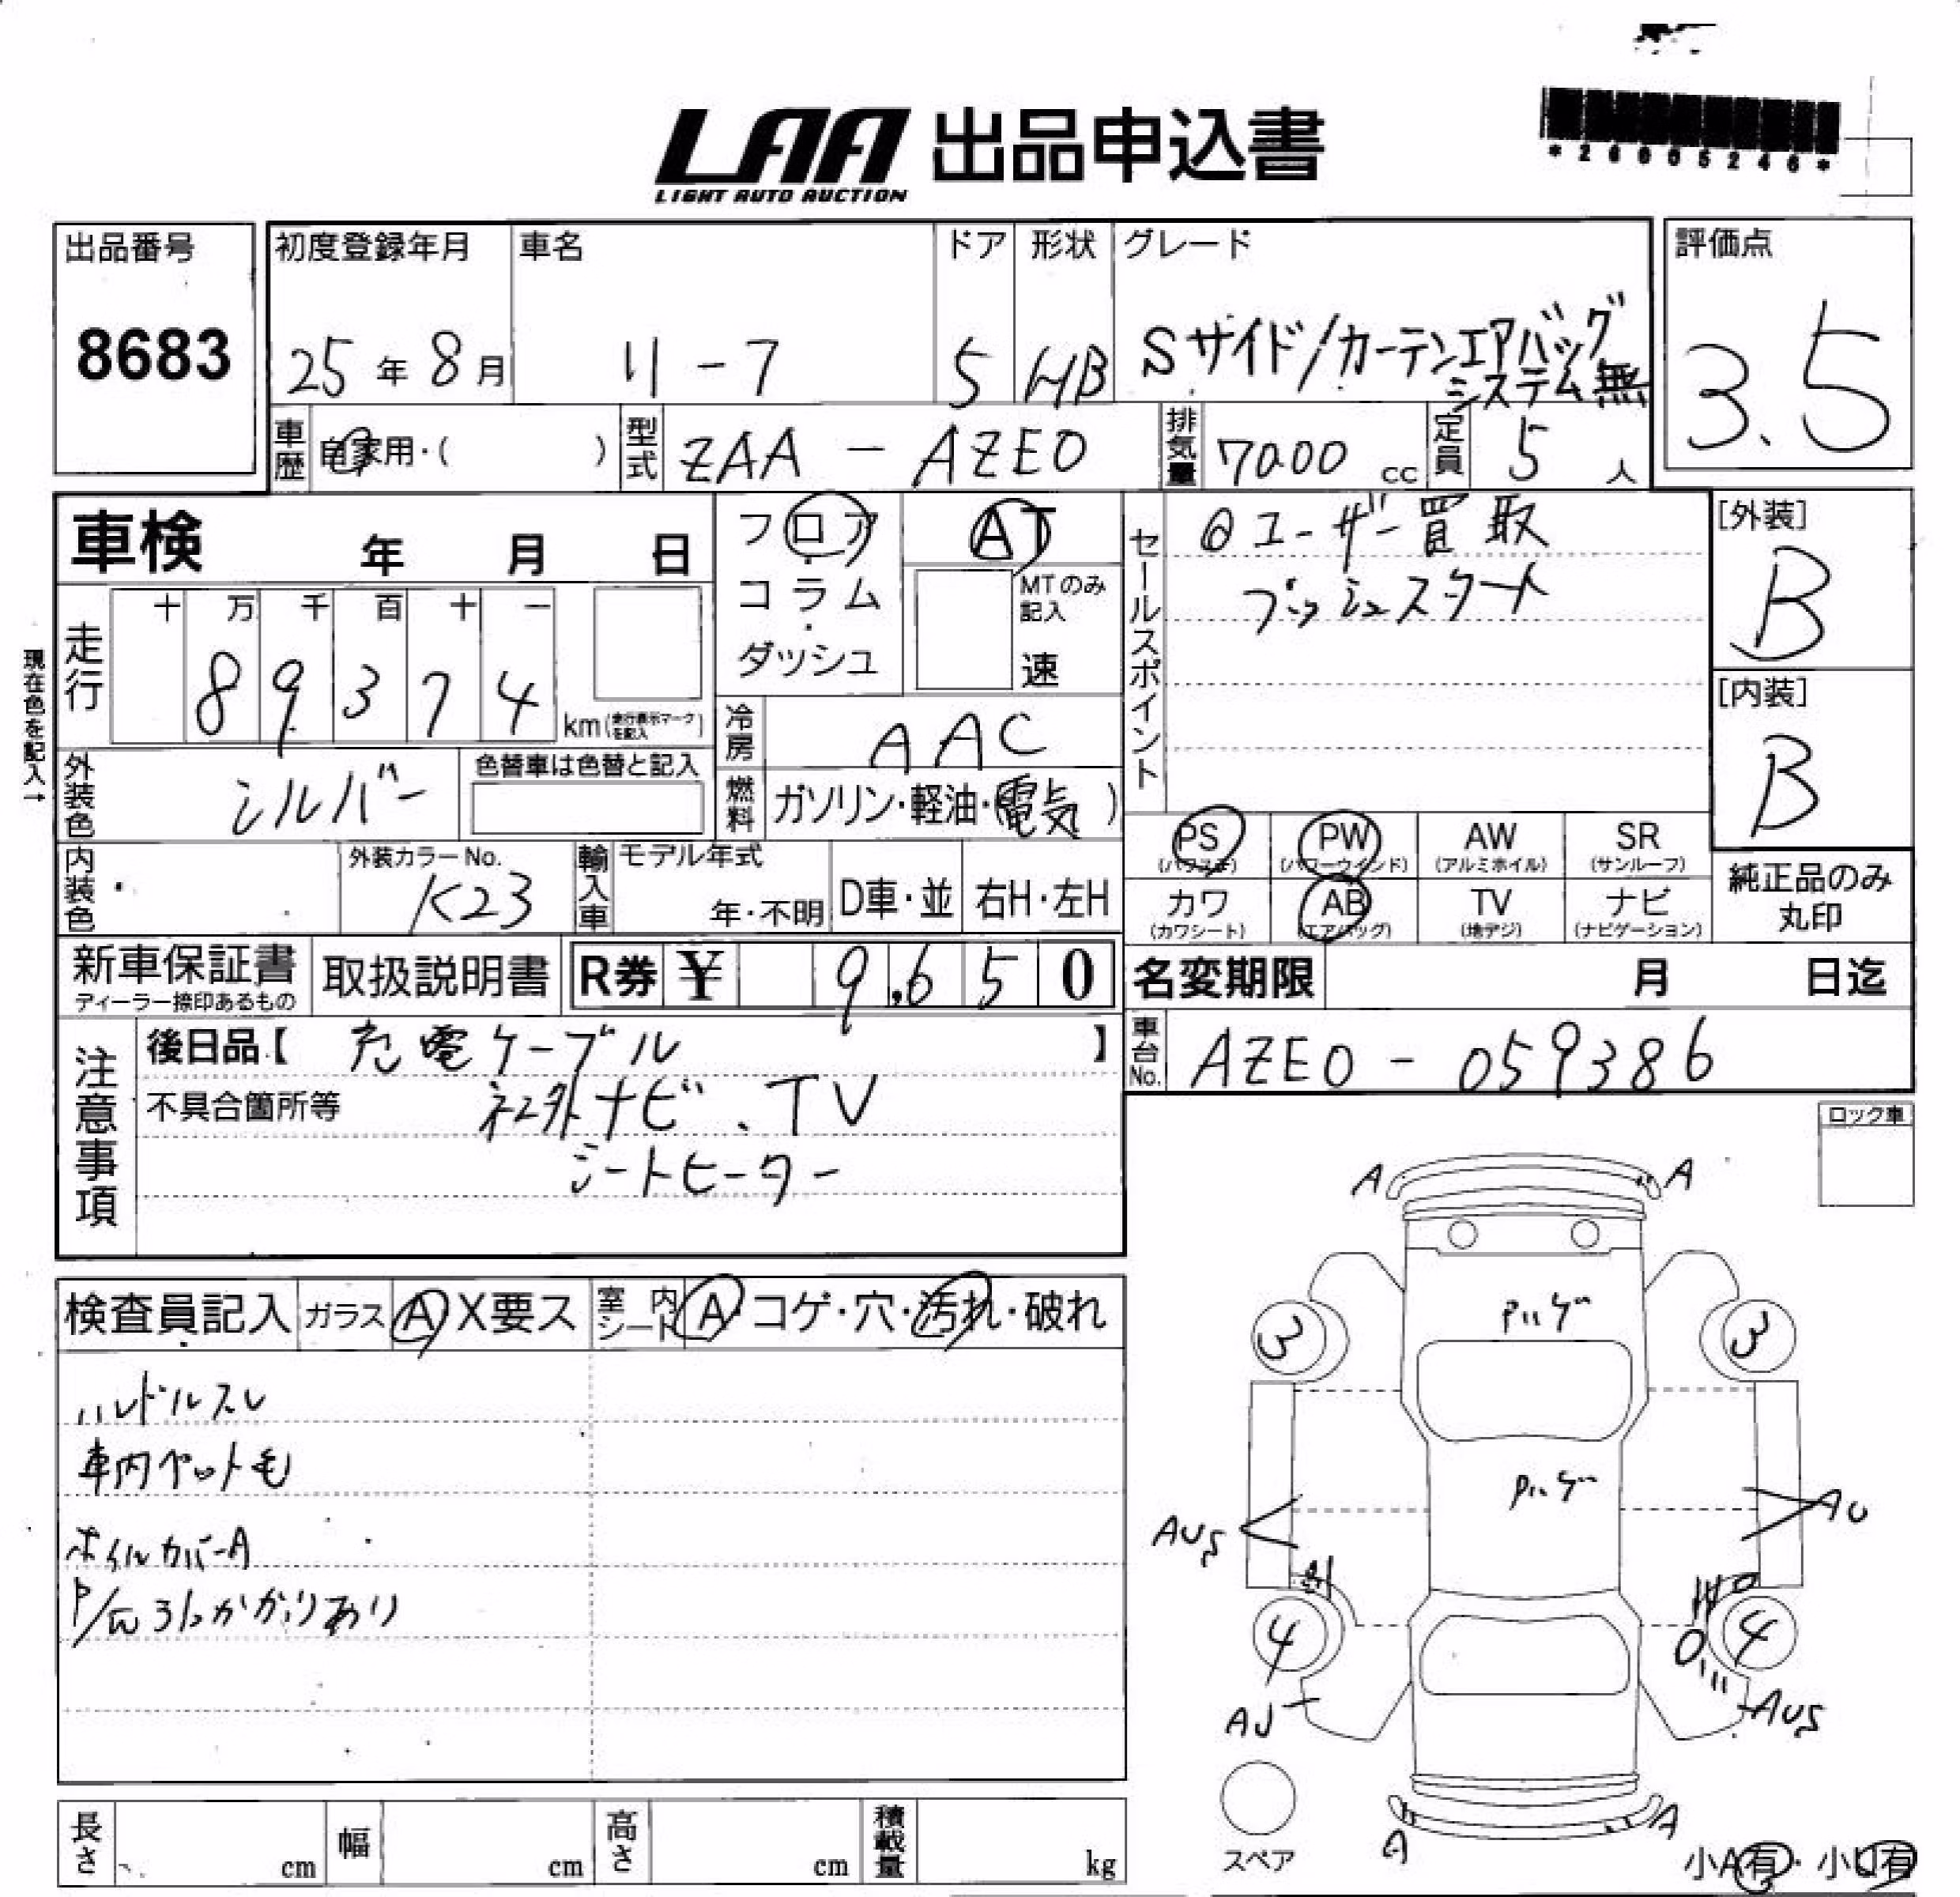 LAA 出品申込書
LIGHT AUTO AUCTION
*26005246*
出品番号
8683
初度登録年月
25年8月
車名
リーフ
ドア
5
形状
HB
グレード
Sサイド/カーテンエアバッグ
システム無
評価点
3.5
車歴
自家用・( )
型式
ZAA-AZE0
排気量
cc
定員
5人
車検 年 月 日
フロア・
コラム・
ダッシュ
AT
MTのみ記入
速
セールスポイント
◎ユーザー買取
プッシュスタート
[外装]
B
[内装]
B
現在色を記入→
走行
十 万 千 百 十 一
8 9 3 7 4
km(走行表示マークを記入)
冷房
AAC
外装色
シルバー
色替車は色替と記入
燃料
ガソリン・軽油・(電気)
PS
(パワステ)
PW
(パワーウインド)
AW
(アルミホイル)
SR
(サンルーフ)
カワ
(カワシート)
AB
(エアバッグ)
TV
(地デジ)
ナビ
(ナビゲーション)
純正品のみ
丸印
内装色
外装カラーNo.
K23
輸入車
モデル年式
年・不明
D車・並
右H・左H
新車保証書
ディーラー捺印あるもの
取扱説明書
R券 ¥ 9,650
名変期限 月 日迄
車台No.
AZE0-059386
注意事項
後日品【 充電ケーブル 】
不具合箇所等
社外ナビ、TV
シートヒーター
ロック車
検査員記入
ガラス A X要ス
室内シート A・コゲ・穴・汚れ・破れ
ハンドルスレ
車内ペット毛
ホイルカバーA
A
A
3
3
AU
4
4
A
A
スペア
小A有・小U有
長さ cm
幅 cm
高さ cm
積載量 kg